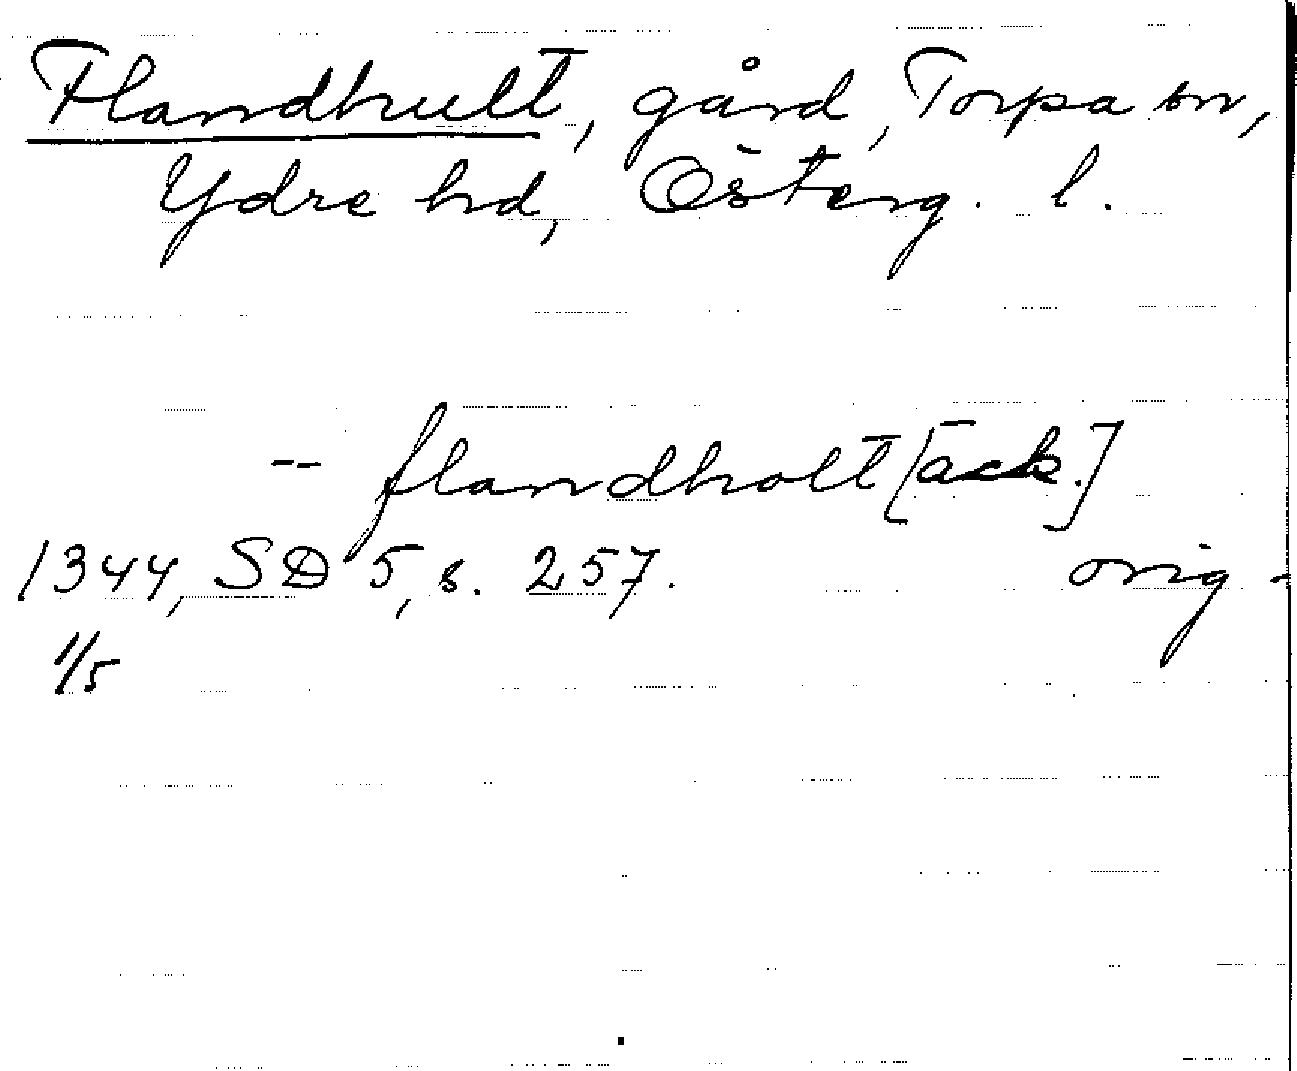 Flandhult, gård, Torpa sn,
Ydre hd, Österg. l.
-- flandholt [ack.]
1344, SD 5, s. 257. orig.
1/5